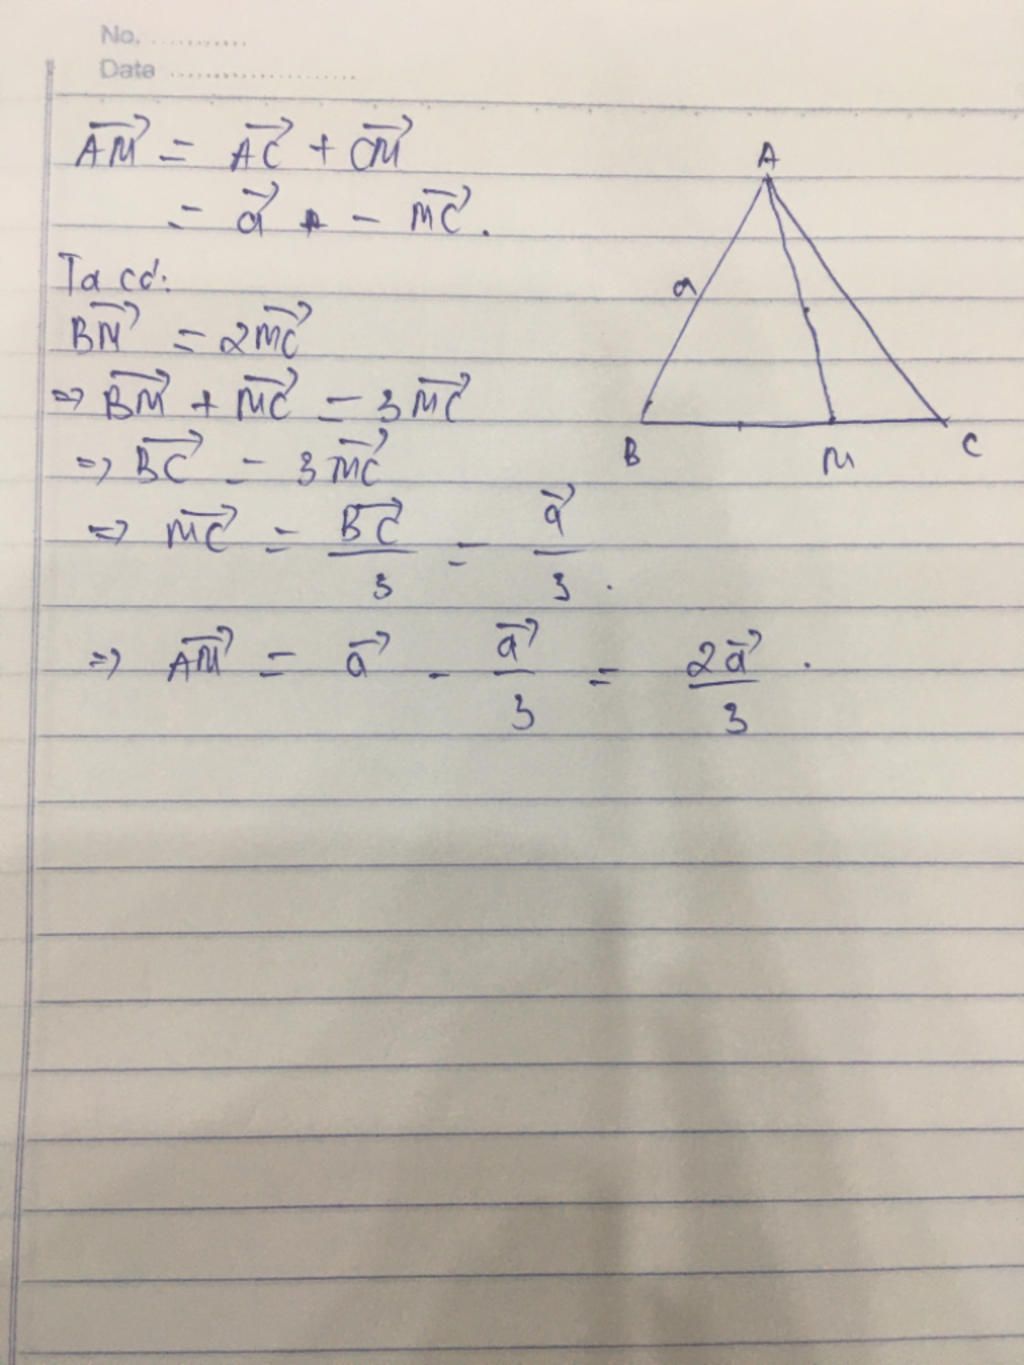 No. ............
Date ........................
A
AM⃗ = AC⃗ + CM⃗
= a⃗ - MC⃗.
Ta có:
a
BM⃗ = 2MC⃗
=> BM⃗ + MC⃗ = 3MC⃗
B M C
=> BC⃗ = 3MC⃗
=> MC⃗ = BC⃗/3 = a⃗/3.
=> AM⃗ = a⃗ - a⃗/3 = 2a⃗/3.